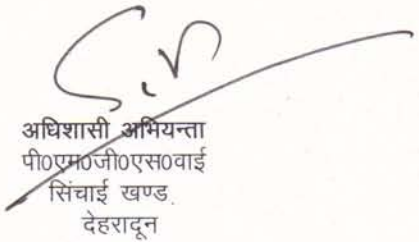 अधिशासी अभियन्ता
पी0एम0जी0एस0वाई
सिंचाई खण्ड.
देहरादून